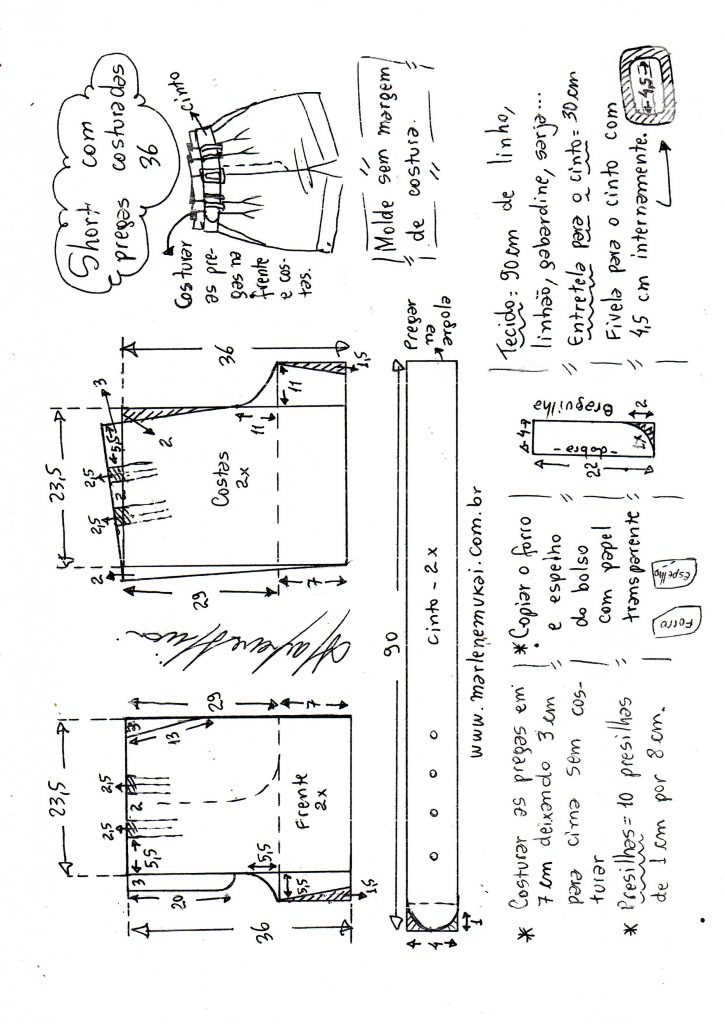 Short
com
pregas costuradas
36
cinto
Costurar
as pre-
gas na
frente
e cos-
tas.
Molde sem margem
de costura.
36
23,5
3
5,5
2,5
2
2,5
2
2
Costas
2x
11
11
1,5
29
7
23,5
29
7
3
13
2,5
2
2,5
5,5
3
20
Frente
2x
5,5
5,5
1,5
36
90
Pregar
na
argola
cinto - 2x
4
1
www.marlenemukai.com.br
* Costurar as pregas em
7 cm deixando 3 cm
para cima sem cos-
turar
* Presilhas = 10 presilhas
de 1 cm por 8 cm.
* Copiar o forro
e espelho
do bolso
com papel
transparente
Forro
Espelho
4
Braguilha
-dobra-
22
1x
2
Tecido: 90 cm de linho,
linhão, gabardine, sarja...
Entretela para o cinto = 30 cm
Fivela para o cinto com
4,5 cm internamente.
4,5